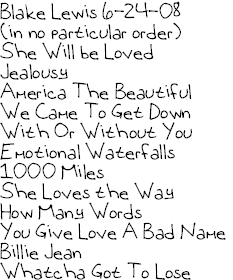 Blake Lewis 6-24-08
(in no particular order)
She Will be Loved
Jealousy
America The Beautiful
We Came To Get Down
With Or Without You
Emotional Waterfalls
1000 Miles
She Loves the Way
How Many Words
You Give Love A Bad Name
Billie Jean
Whatcha Got To Lose